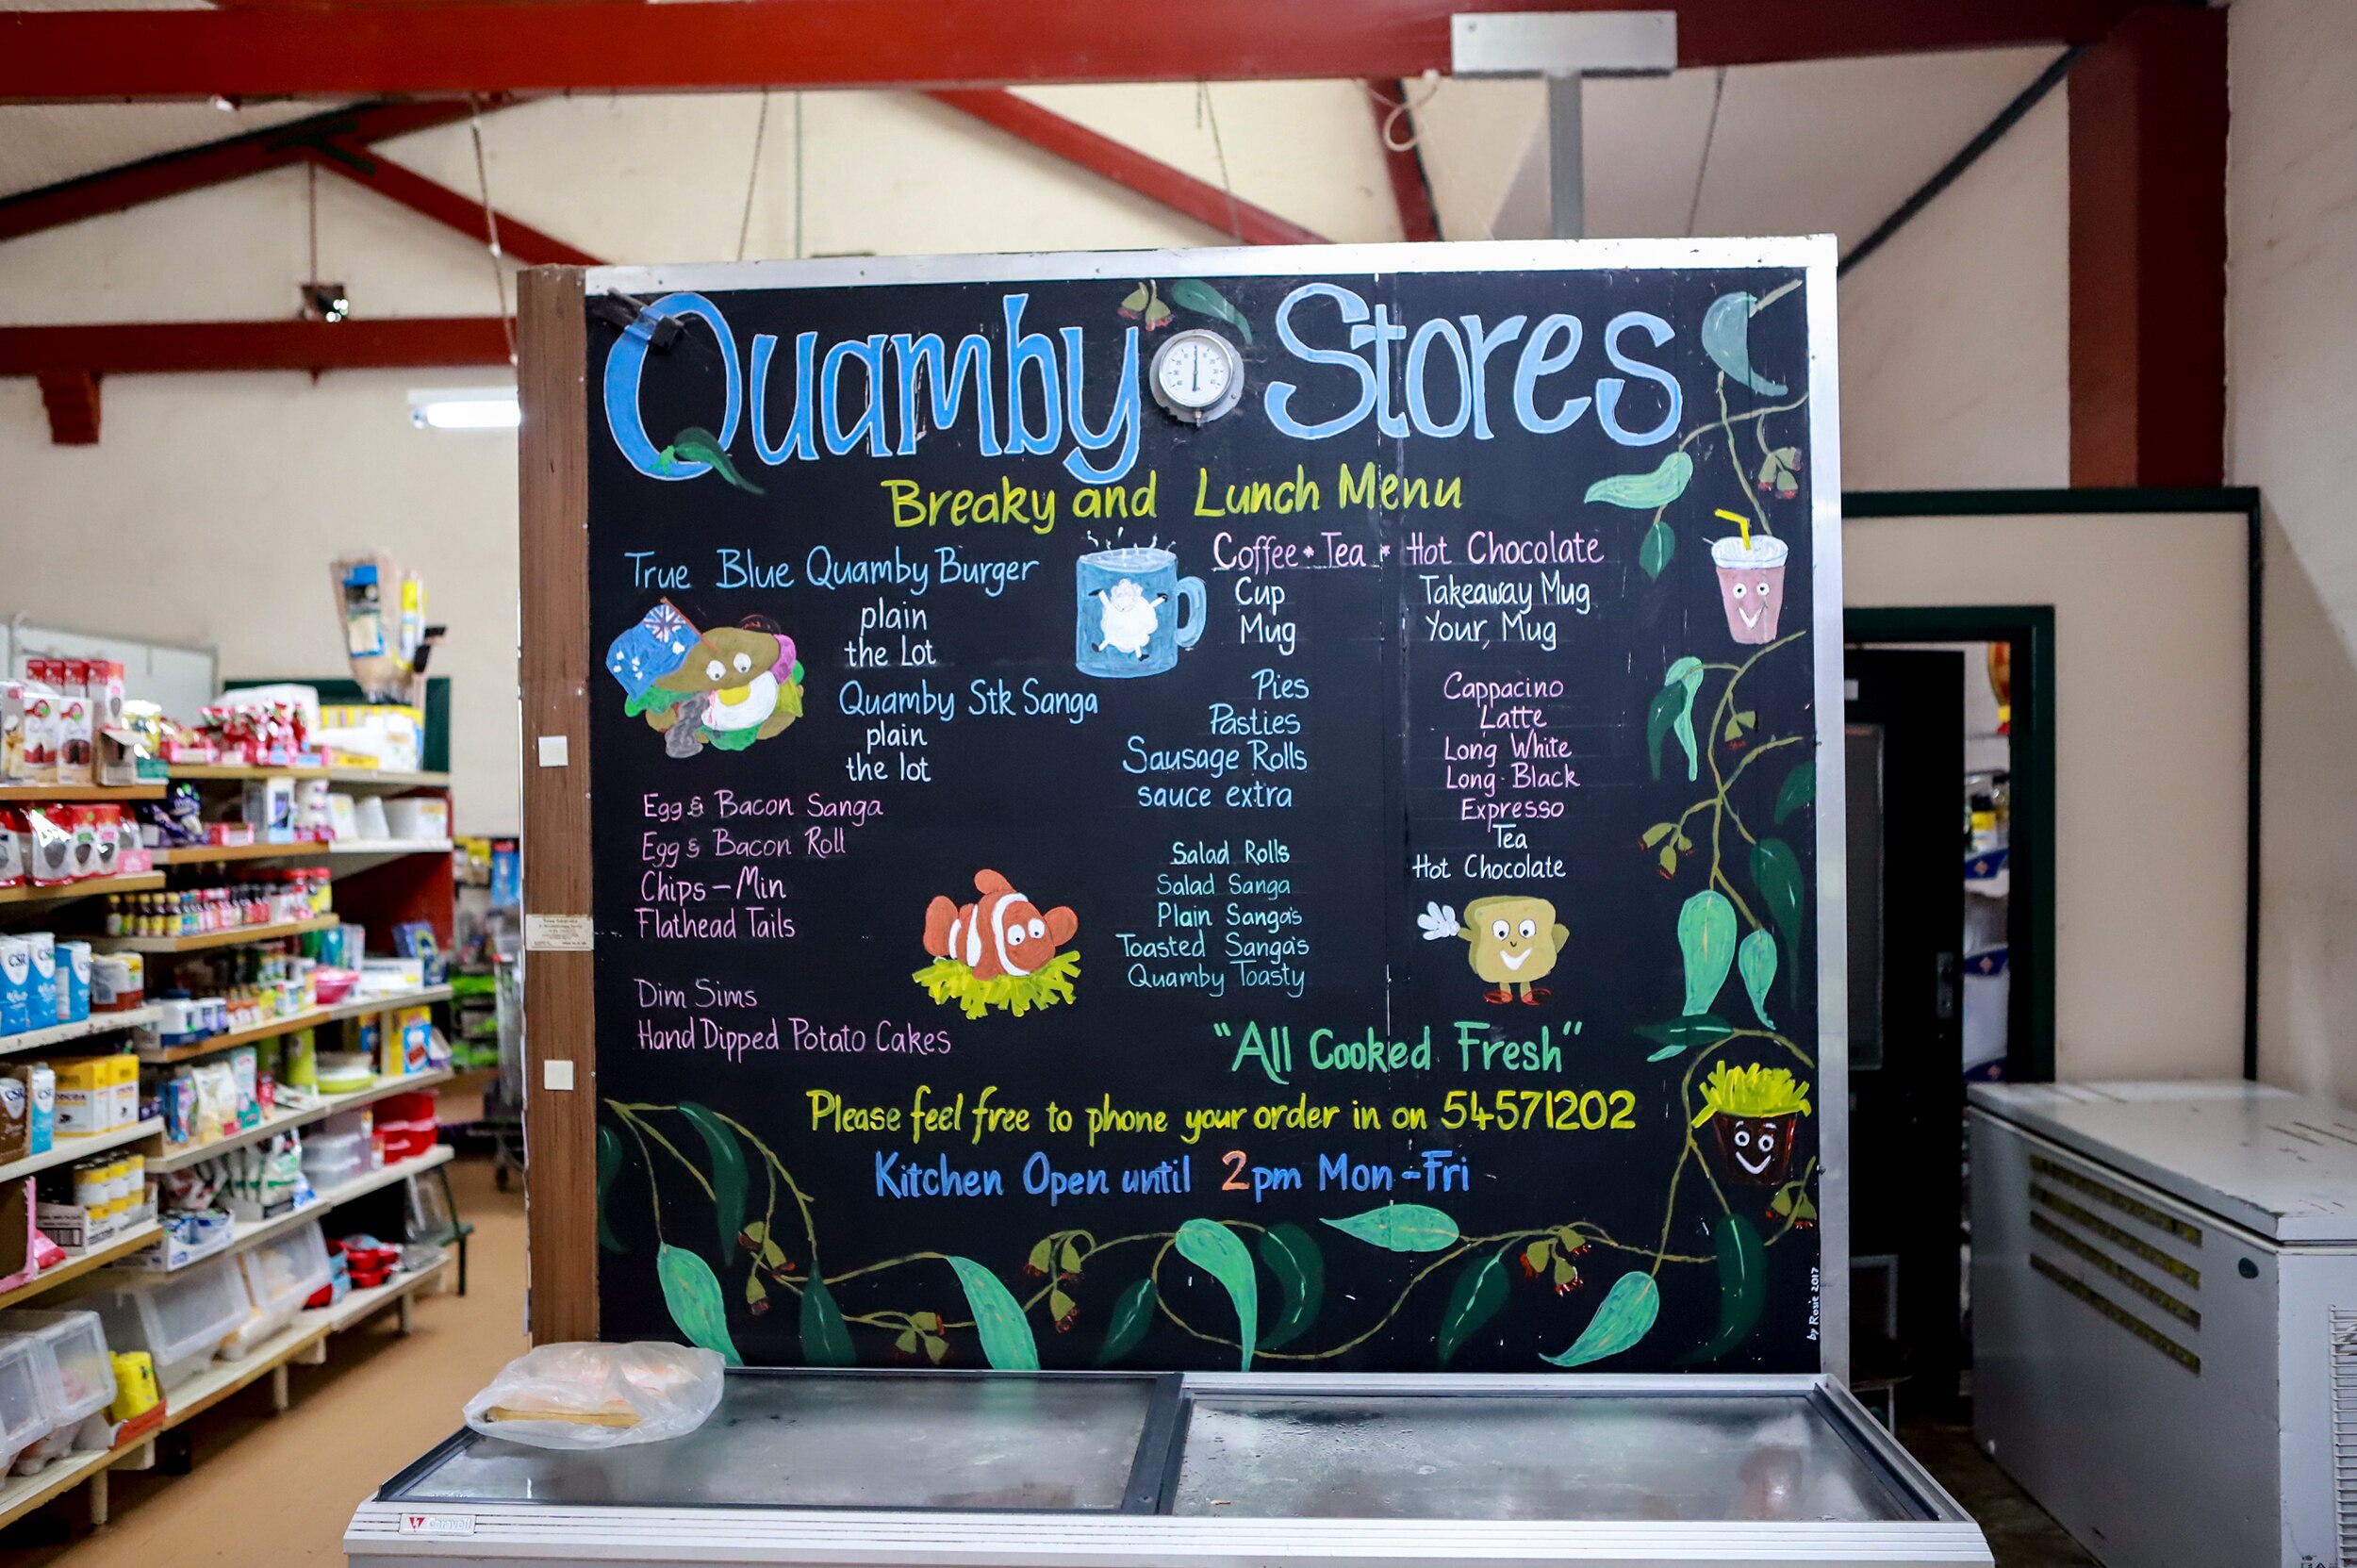 Quamby Stores
Breaky and Lunch Menu
True Blue Quamby Burger
plain
the Lot
Quamby Stk Sanga
plain
the lot
Egg & Bacon Sanga
Egg & Bacon Roll
Chips - Min
Flathead Tails
Dim Sims
Hand Dipped Potato Cakes
Coffee * Tea * Hot Chocolate
Cup
Mug
Takeaway Mug
Your, Mug
Pies
Pasties
Sausage Rolls
sauce extra
Salad Rolls
Salad Sanga
Plain Sanga's
Toasted Sanga's
Quamby Toasty
Cappacino
Latte
Long White
Long Black
Expresso
Tea
Hot Chocolate
"All Cooked Fresh"
Please feel free to phone your order in on 54571202
Kitchen Open until 2pm Mon - Fri
by Rosie 2017
Caravell
CSR
CSR
CSR